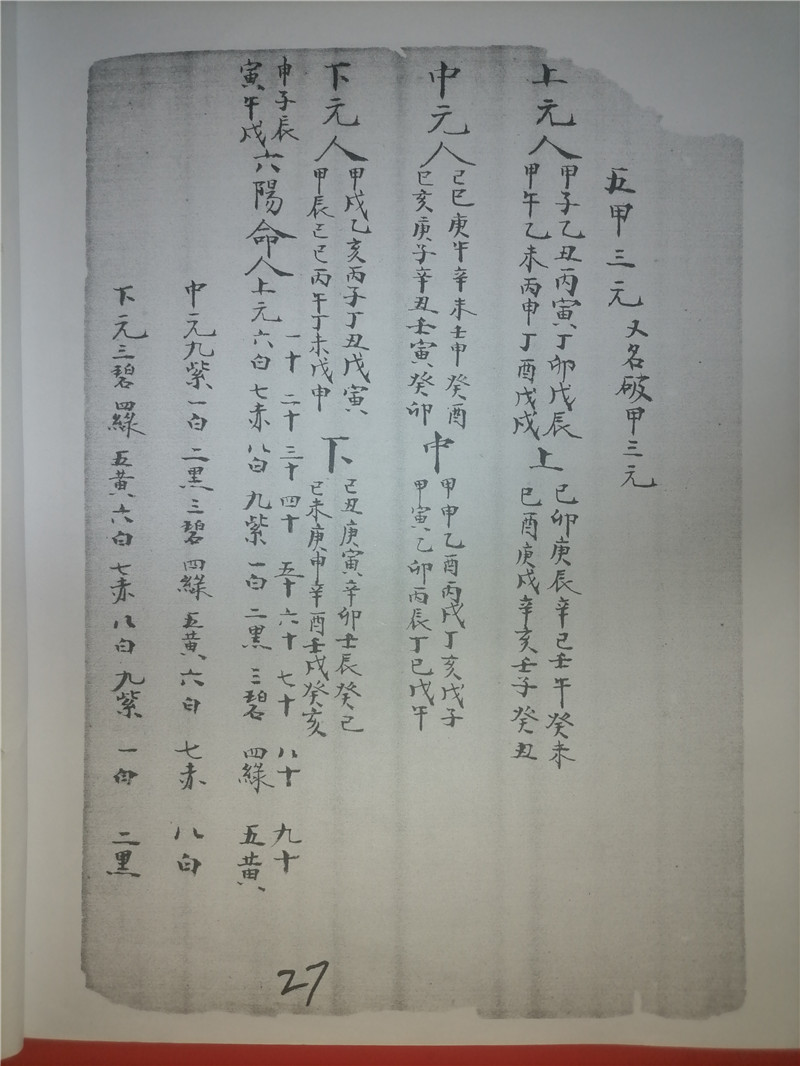 五甲三元 又名破甲三元
上元人 甲子乙丑丙寅丁卯戊辰
甲午乙未丙申丁酉戊戌
上 己卯庚辰辛己壬午癸未
己酉庚戌辛亥壬子癸丑
中元人 己巳庚午辛未壬申癸酉
已亥庚子辛丑壬寅癸卯
中 甲申乙酉丙戌丁亥戊子
甲寅乙卯丙辰丁巳戊午
下元人 甲戌乙亥丙子丁丑戊寅
甲辰乙巳丙午丁未戊申
下 己丑庚寅辛卯壬辰癸巳
己未庚申辛酉壬戌癸亥
申子辰
寅午戌
六陽命人
一十 二十 三十 四十 五十 六十 七十 八十 九十
上元六白 七赤 八白 九紫 一白 二黑 三碧 四綠 五黄
中元九紫 一白 二黑 三碧 四綠 五黄 六白 七赤 八白
下元三碧 四綠 五黄 六白 七赤 八白 九紫 一白 二黑
27